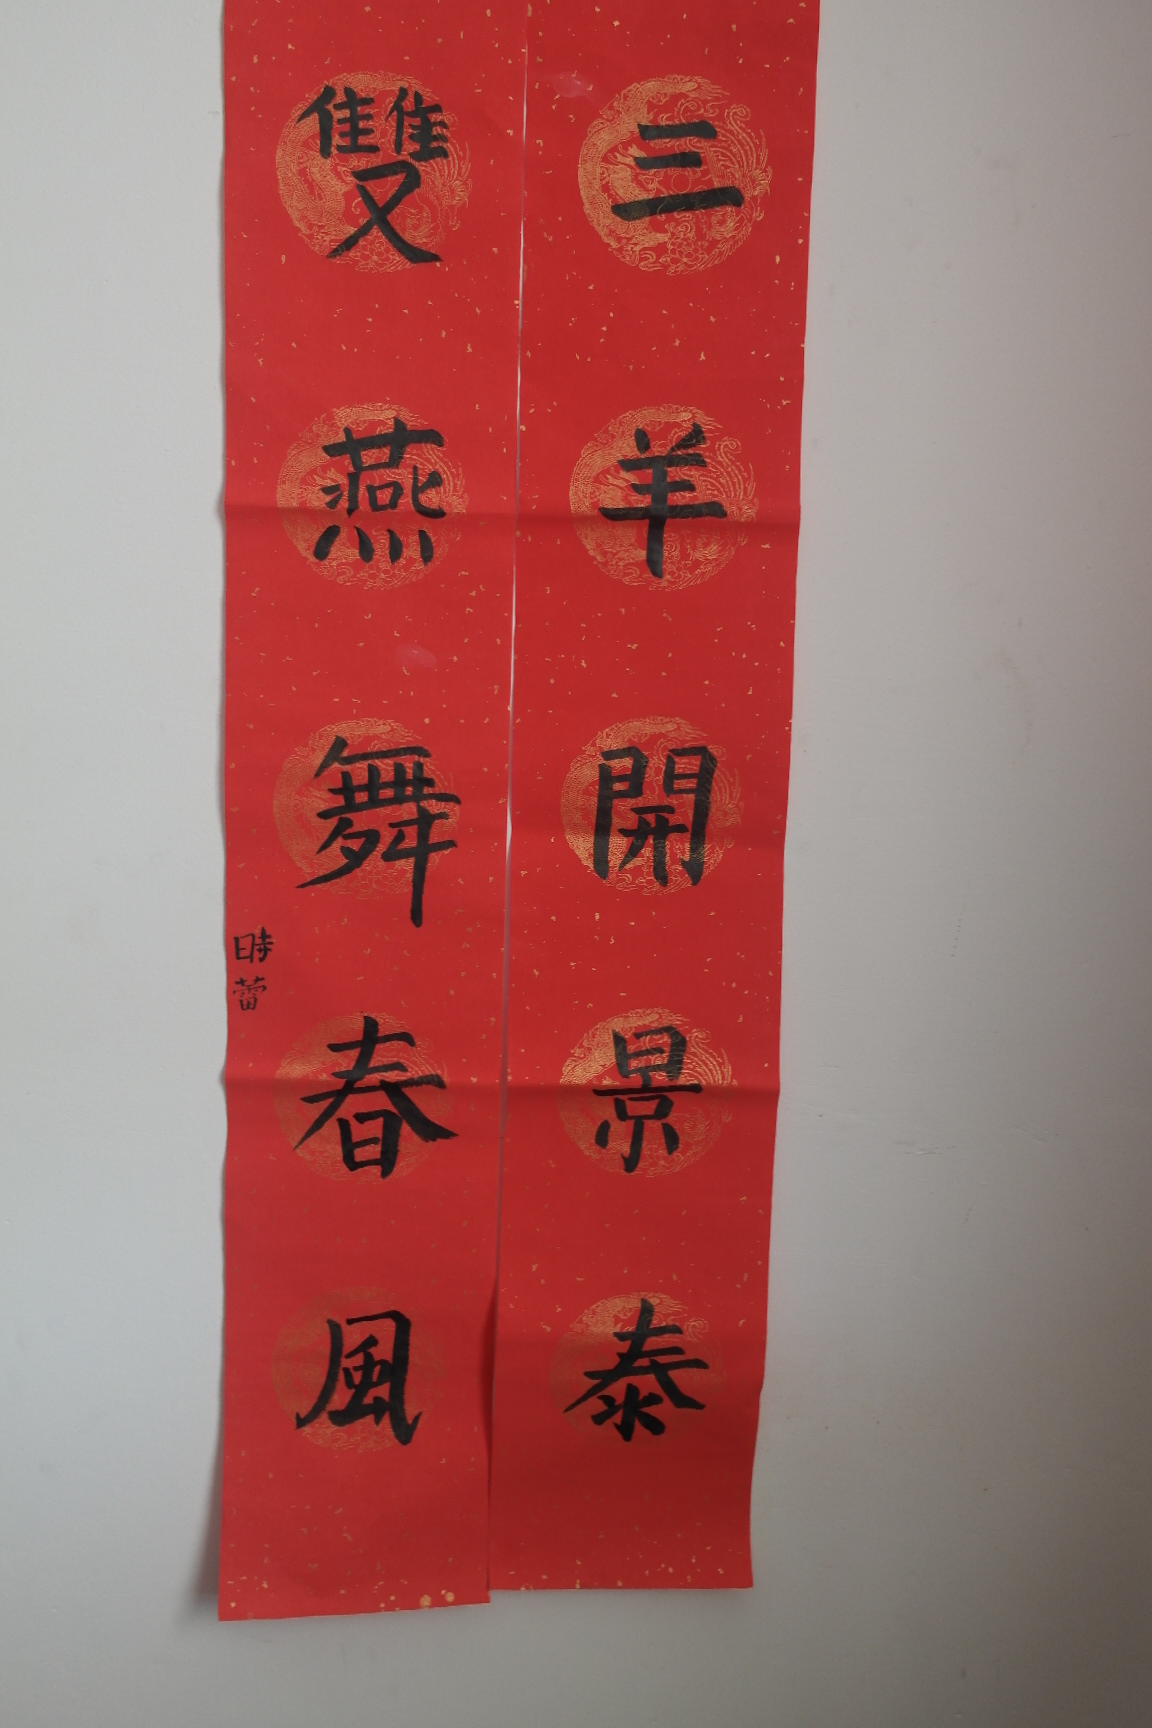 三羊開景泰
雙燕舞春風
時蕾